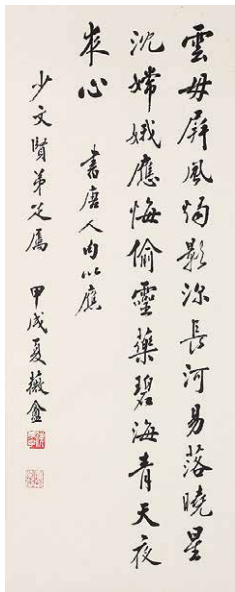 雲母屏風燭影深長河易落曉星
沈嫦娥應悔偷靈藥碧海青天夜
夜心 書唐人句以應
少文賢弟疋屬 甲戌夏薇盦